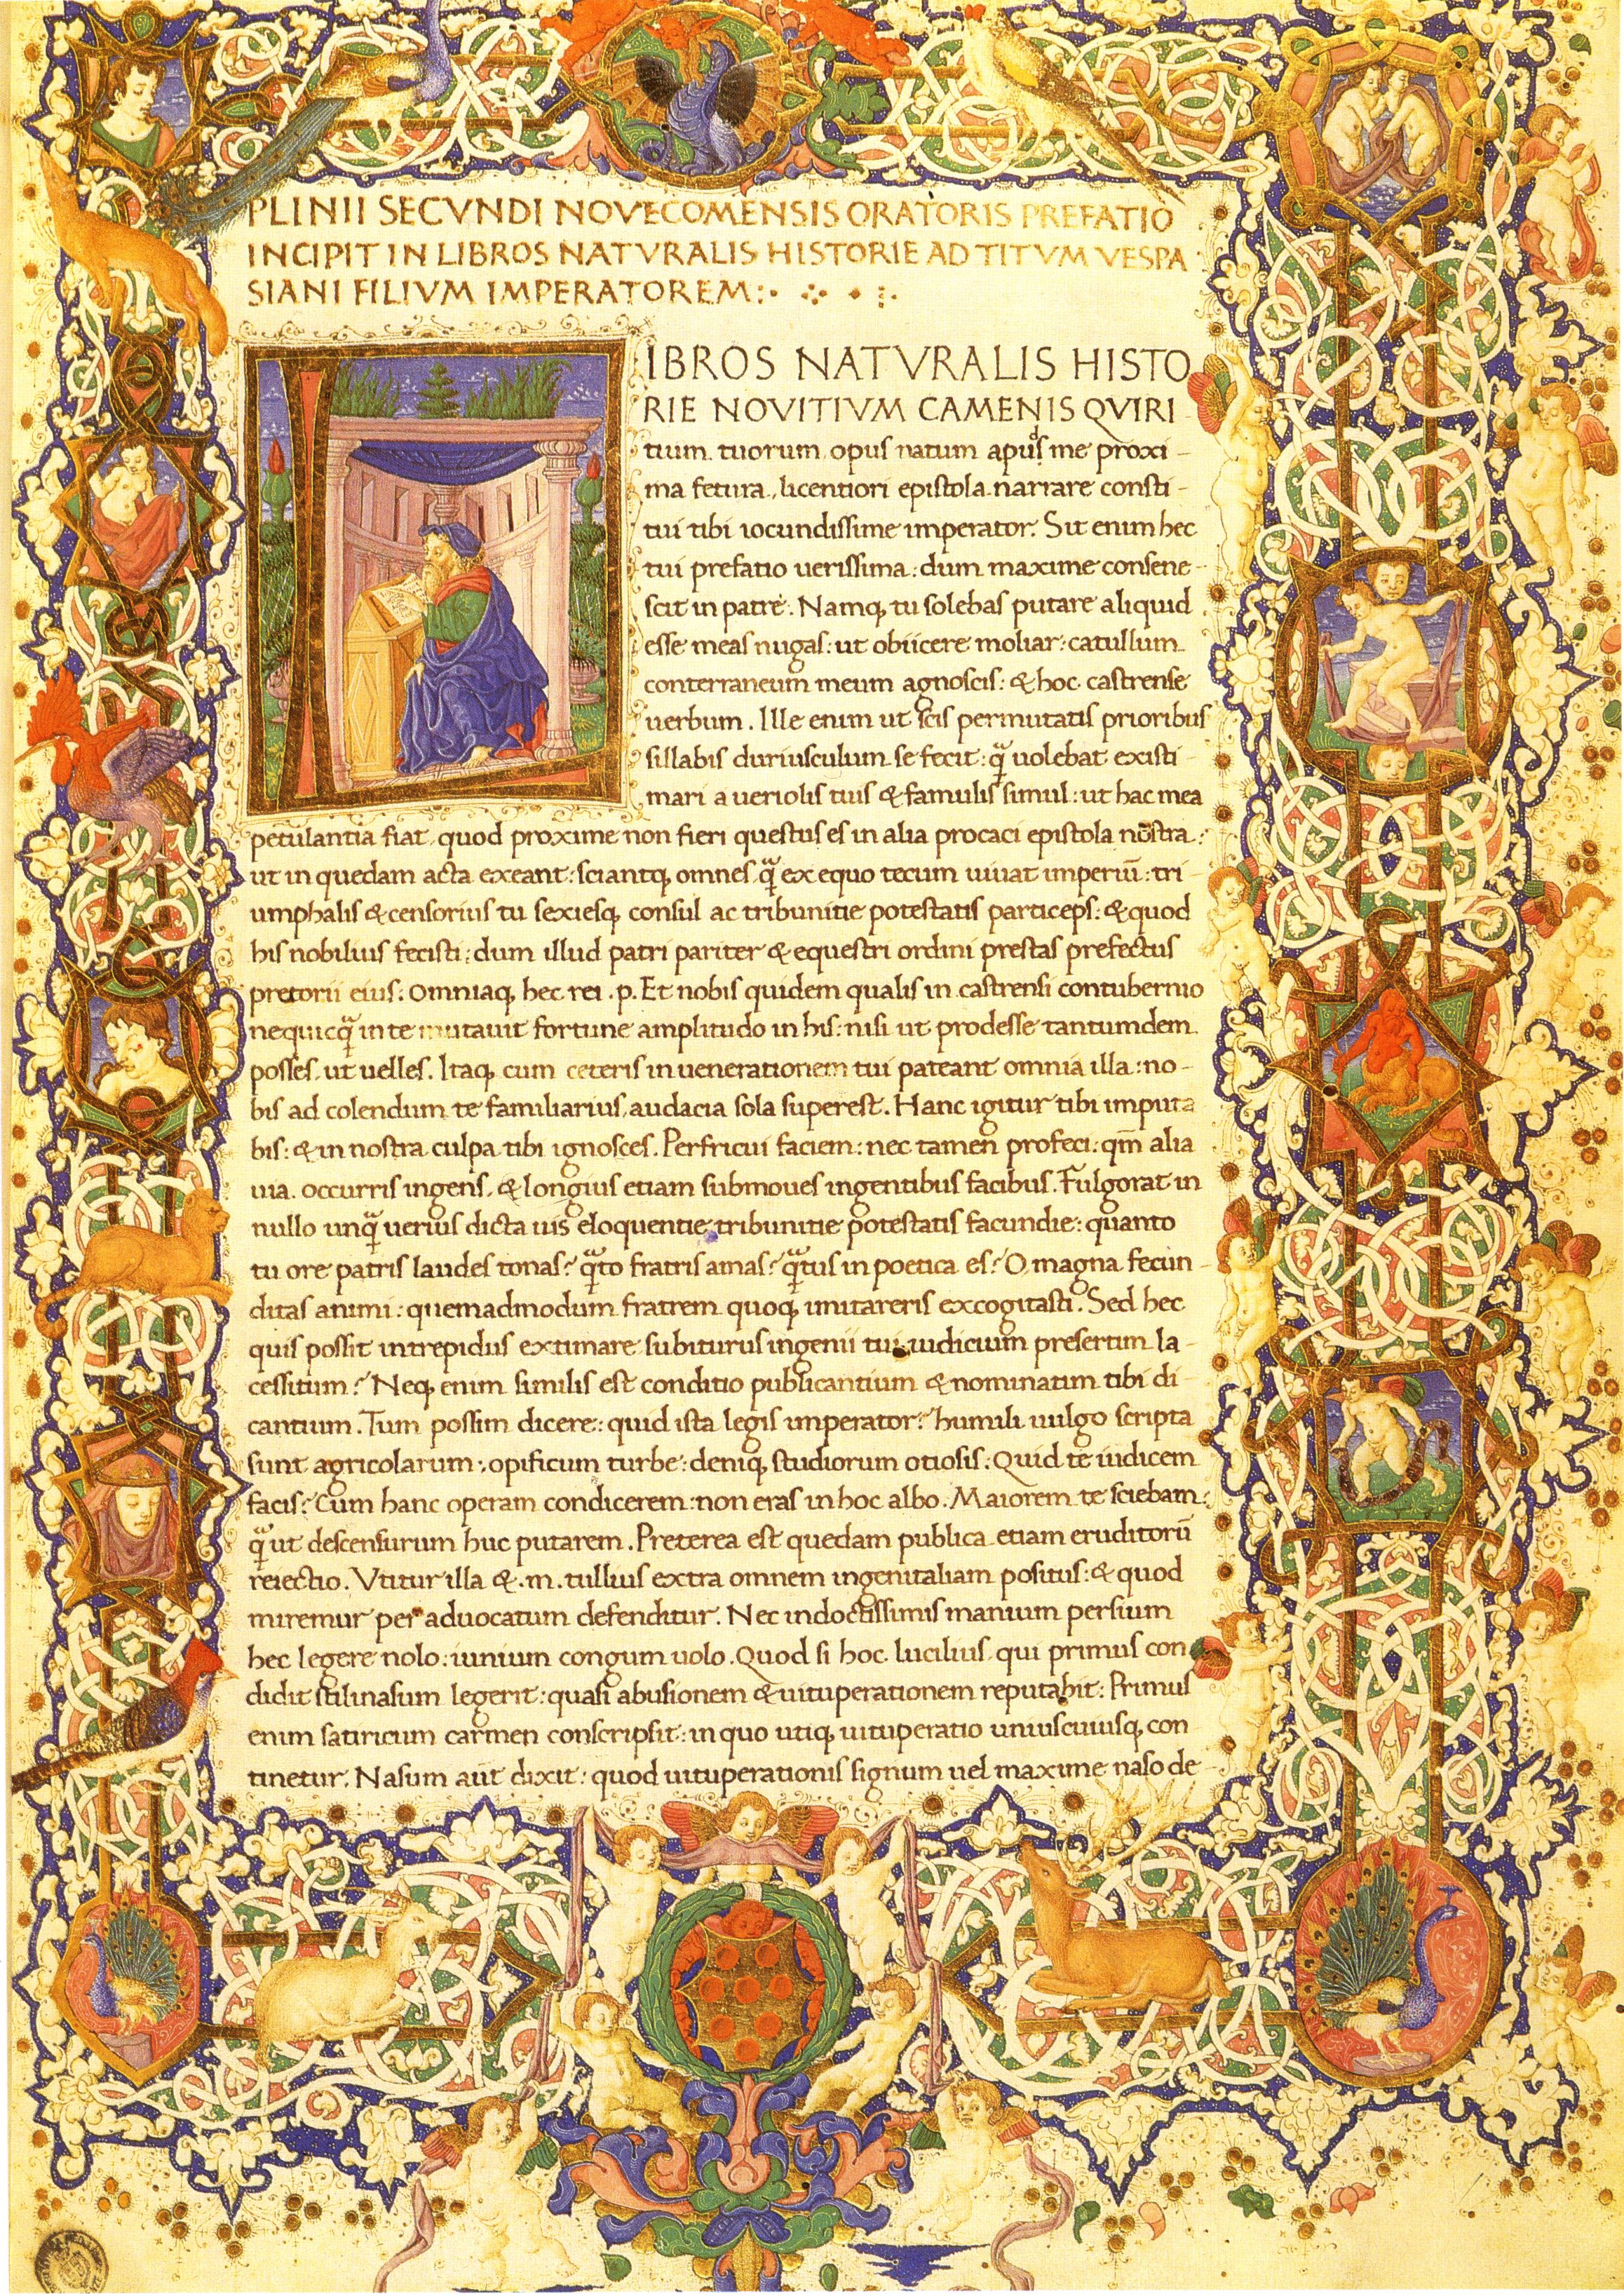 PLINII SECVNDI NOVECOMENSIS ORATORIS PREFATIO
INCIPIT IN LIBROS NATVRALIS HISTORIE AD TITVM VESPA
SIANI FILIVM IMPERATOREM:
LIBROS NATVRALIS HISTO
RIE NOVITIVM CAMENIS QVIRI
tium tuorum opus natum apud me proxi-
ma fetura, licentiori epistola narrare consti-
tui tibi iocundissime imperator. Sit enim hec
tui prefatio uerissima: dum maxime consene-
scit in patre. Namq tu solebas putare aliquid
esse meas nugas: ut obiicere moliar: catullum
conterraneum meum agnoscis: & hoc castrense
uerbum. Ille enim ut scis permutatis prioribus
sillabis duriusculum se fecit: q̃ uolebat existi-
mari a ueriolis tuis & famulis simul: ut hac mea
petulantia fiat, quod proxime non fieri questus es in alia procaci epistola nostra:
ut in quedam acta exeant: sciantq omnes q̃ ex equo tecum uiuat imperiũ: tri-
umphalis & censorius tu sexiesq consul ac tribunitie potestatis particeps: & quod
his nobilius fecisti: dum illud patri pariter & equestri ordini prestas prefectus
pretorii eius: Omniaq hec rei .p. Et nobis quidem qualis in castrensi contubernio
nequicq̃ in te mutauit fortune amplitudo in his: nisi ut prodesse tantumdem
posses, ut uelles. Itaq cum ceteris in uenerationem tui pateant omnia illa: no-
bis ad colendum te familiarius, audacia sola superest. Hanc igitur tibi imputa
bis: & in nostra culpa tibi ignosces. Perfricui faciem: nec tamen profeci: qm̃ alia
uia occurris ingens, & longius etiam submoues ingentibus facibus. Fulgorat in
nullo unq̃ uerius dicta uis eloquentie, tribunitie potestatis facundie: quanto
tu ore patris laudes tonas? q̃to fratris amas? q̃tus in poetica es? O magna fecun-
ditas animi: quemadmodum fratrem quoq imitareris excogitasti. Sed hec
quis possit intrepidus extimare subiturus ingenii tui iudicium presertim la-
cessitum? Neq enim similis est conditio publicantium & nominatim tibi di-
cantium. Tum possim dicere: quid ista legis imperator? humili uulgo scripta
sunt agricolarum, opificum turbe: deniq studiorum otiosis: Quid te iudicem
facis? Cum hanc operam condicerem: non eras in hoc albo. Maiorem te sciebam:
q̃ ut descensurum huc putarem. Preterea est quedam publica etiam eruditorũ
reiectio. Vtitur illa & .m. tullius extra omnem ingenitaliam positus: & quod
miremur per aduocatum defenditur. Nec indoctissimis manium persium
hec legere nolo: iunium congum uolo. Quod si hoc lucilius, qui primus con
didit stilinasum legerit: quasi abusionem & uituperationem reputabit: Primus
enim satiricum carmen conscripsit: in quo utiq uituperatio uniuscuiusq con
tinetur. Nasum aũt dixit: quod uituperationis signum uel maxime naso de-